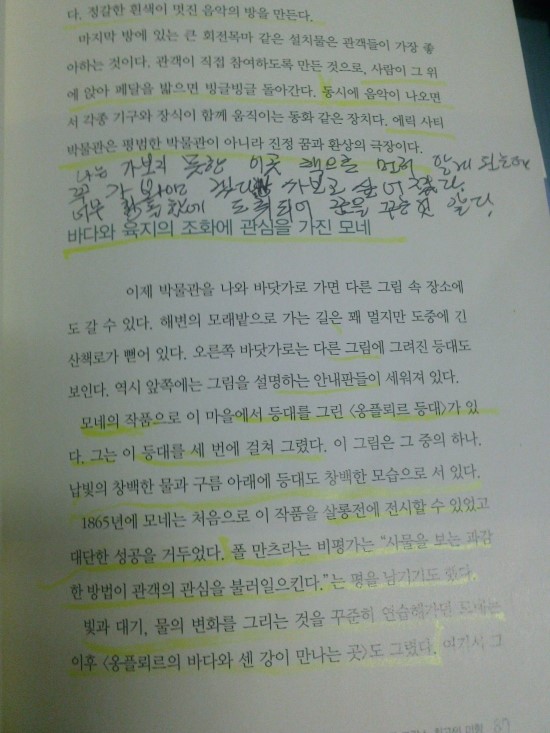 다. 정갈한 흰색이 멋진 음악의 방을 만든다.
마지막 방에 있는 큰 회전목마 같은 설치물은 관객들이 가장 좋
아하는 것이다. 관객이 직접 참여하도록 만든 것으로, 사람이 그 위
에 앉아 페달을 밟으면 빙글빙글 돌아간다. 동시에 음악이 나오면
서 각종 기구와 장식이 함께 움직이는 동화 같은 장치다. 에릭 사티
박물관은 평범한 박물관이 아니라 진정 꿈과 환상의 극장이다.
나는 가보지 못한 이곳 책으로 먼저 알게 되는데
꼭 가 봐야 가보고 싶어 졌다.
너무 도취되어 꿈을 꾸는것 같다.
바다와 육지의 조화에 관심을 가진 모네
이제 박물관을 나와 바닷가로 가면 다른 그림 속 장소에
도 갈 수 있다. 해변의 모래밭으로 가는 길은 꽤 멀지만 도중에 긴
산책로가 뻗어 있다. 오른쪽 바닷가로는 다른 그림에 그려진 등대도
보인다. 역시 앞쪽에는 그림을 설명하는 안내판들이 세워져 있다.
모네의 작품으로 이 마을에서 등대를 그린 〈옹플뢰르 등대〉가 있
다. 그는 이 등대를 세 번에 걸쳐 그렸다. 이 그림은 그 중의 하나.
남빛의 창백한 물과 구름 아래에 등대도 창백한 모습으로 서 있다.
1865년에 모네는 처음으로 이 작품을 살롱전에 전시할 수 있었고
대단한 성공을 거두었다. 폴 만츠라는 비평가는 “사물을 보는 과감
한 방법이 관객의 관심을 불러일으킨다.”는 평을 남기기도 했다.
빛과 대기, 물의 변화를 그리는 것을 꾸준히 연습해가던 모네는
이후 〈옹플뢰르의 바다와 센 강이 만나는 곳〉도 그렸다. 여기서 그
87